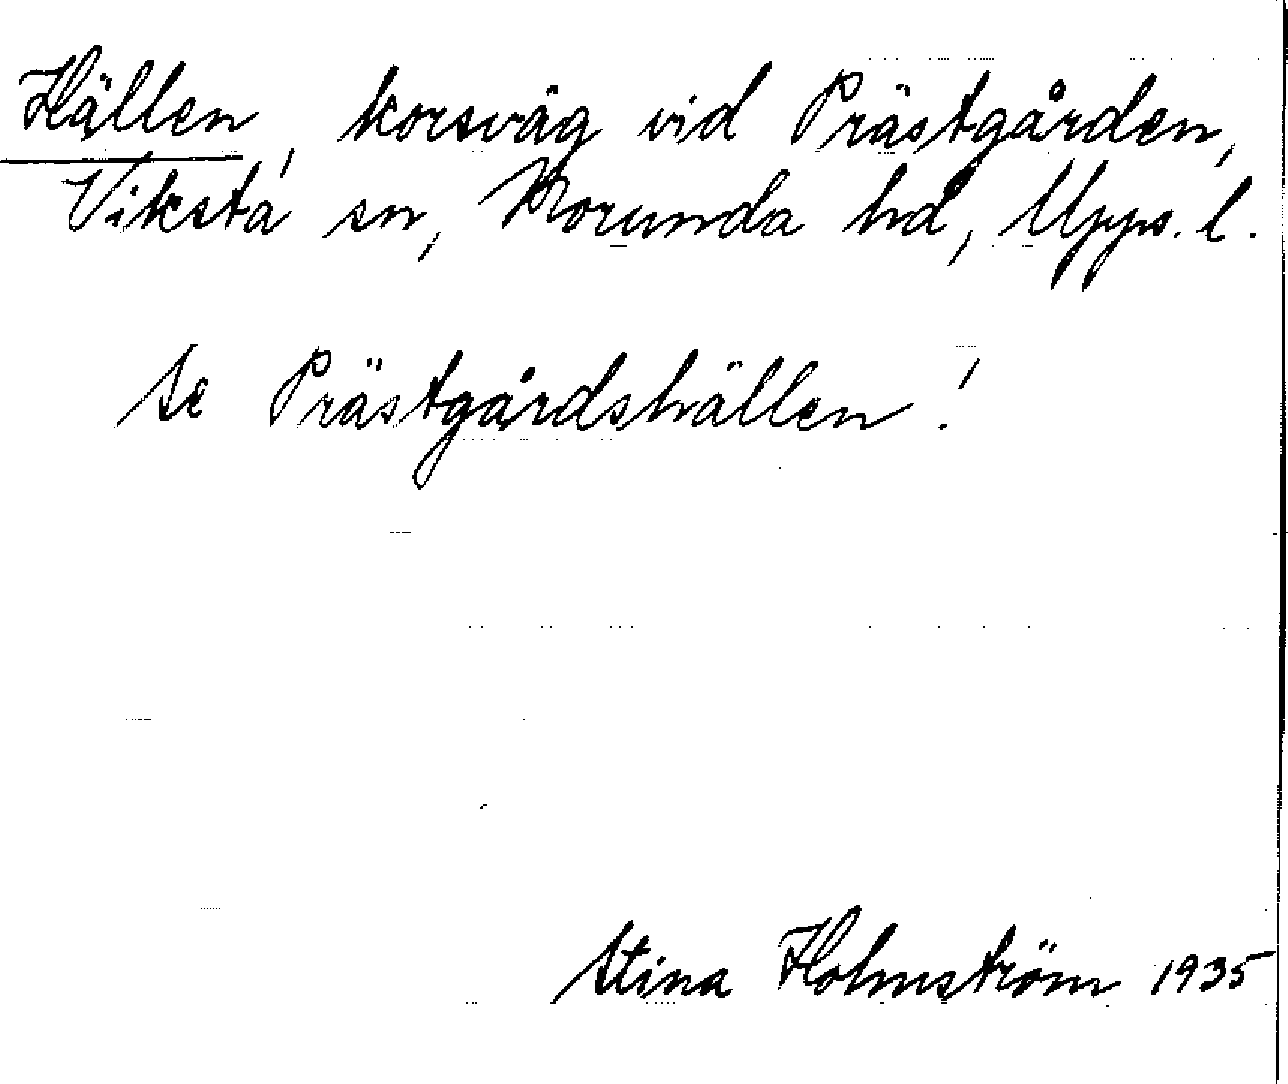 Hällen, korsväg vid Prästgården,
Viksta sn, Norunda hd, Upps. l.
Se Prästgårdshällen!
Stina Holmström 1935